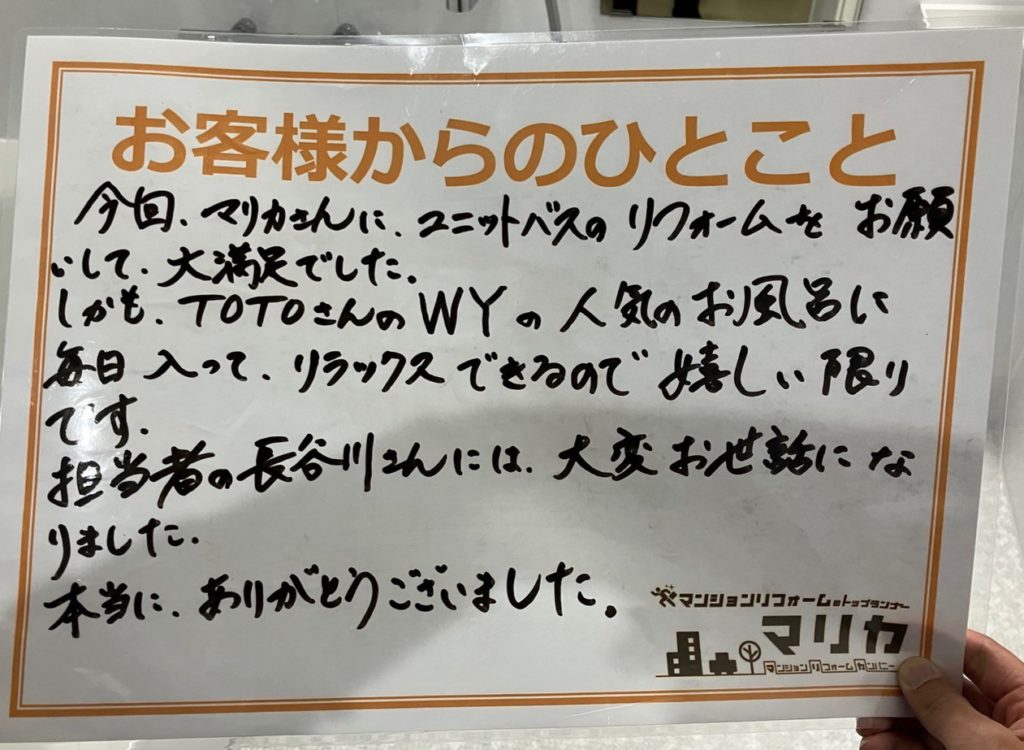 お客様からのひとこと
今回、マリカさんに、ユニットバスのリフォームをお願
いして、大満足でした。
しかも、TOTOさんのWYの人気のお風呂に
毎日入って、リラックスできるので嬉しい限り
です。
担当者の長谷川さんには、大変お世話にな
りました。
本当に、ありがとうございました。
マンションリフォームのトップランナー
マリカ
マンションリフォームカンパニー